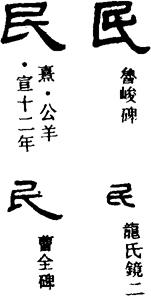 民
魯峻碑
民
龍氏鏡二
民
熹·公羊
·宣十二年
民
曹全碑